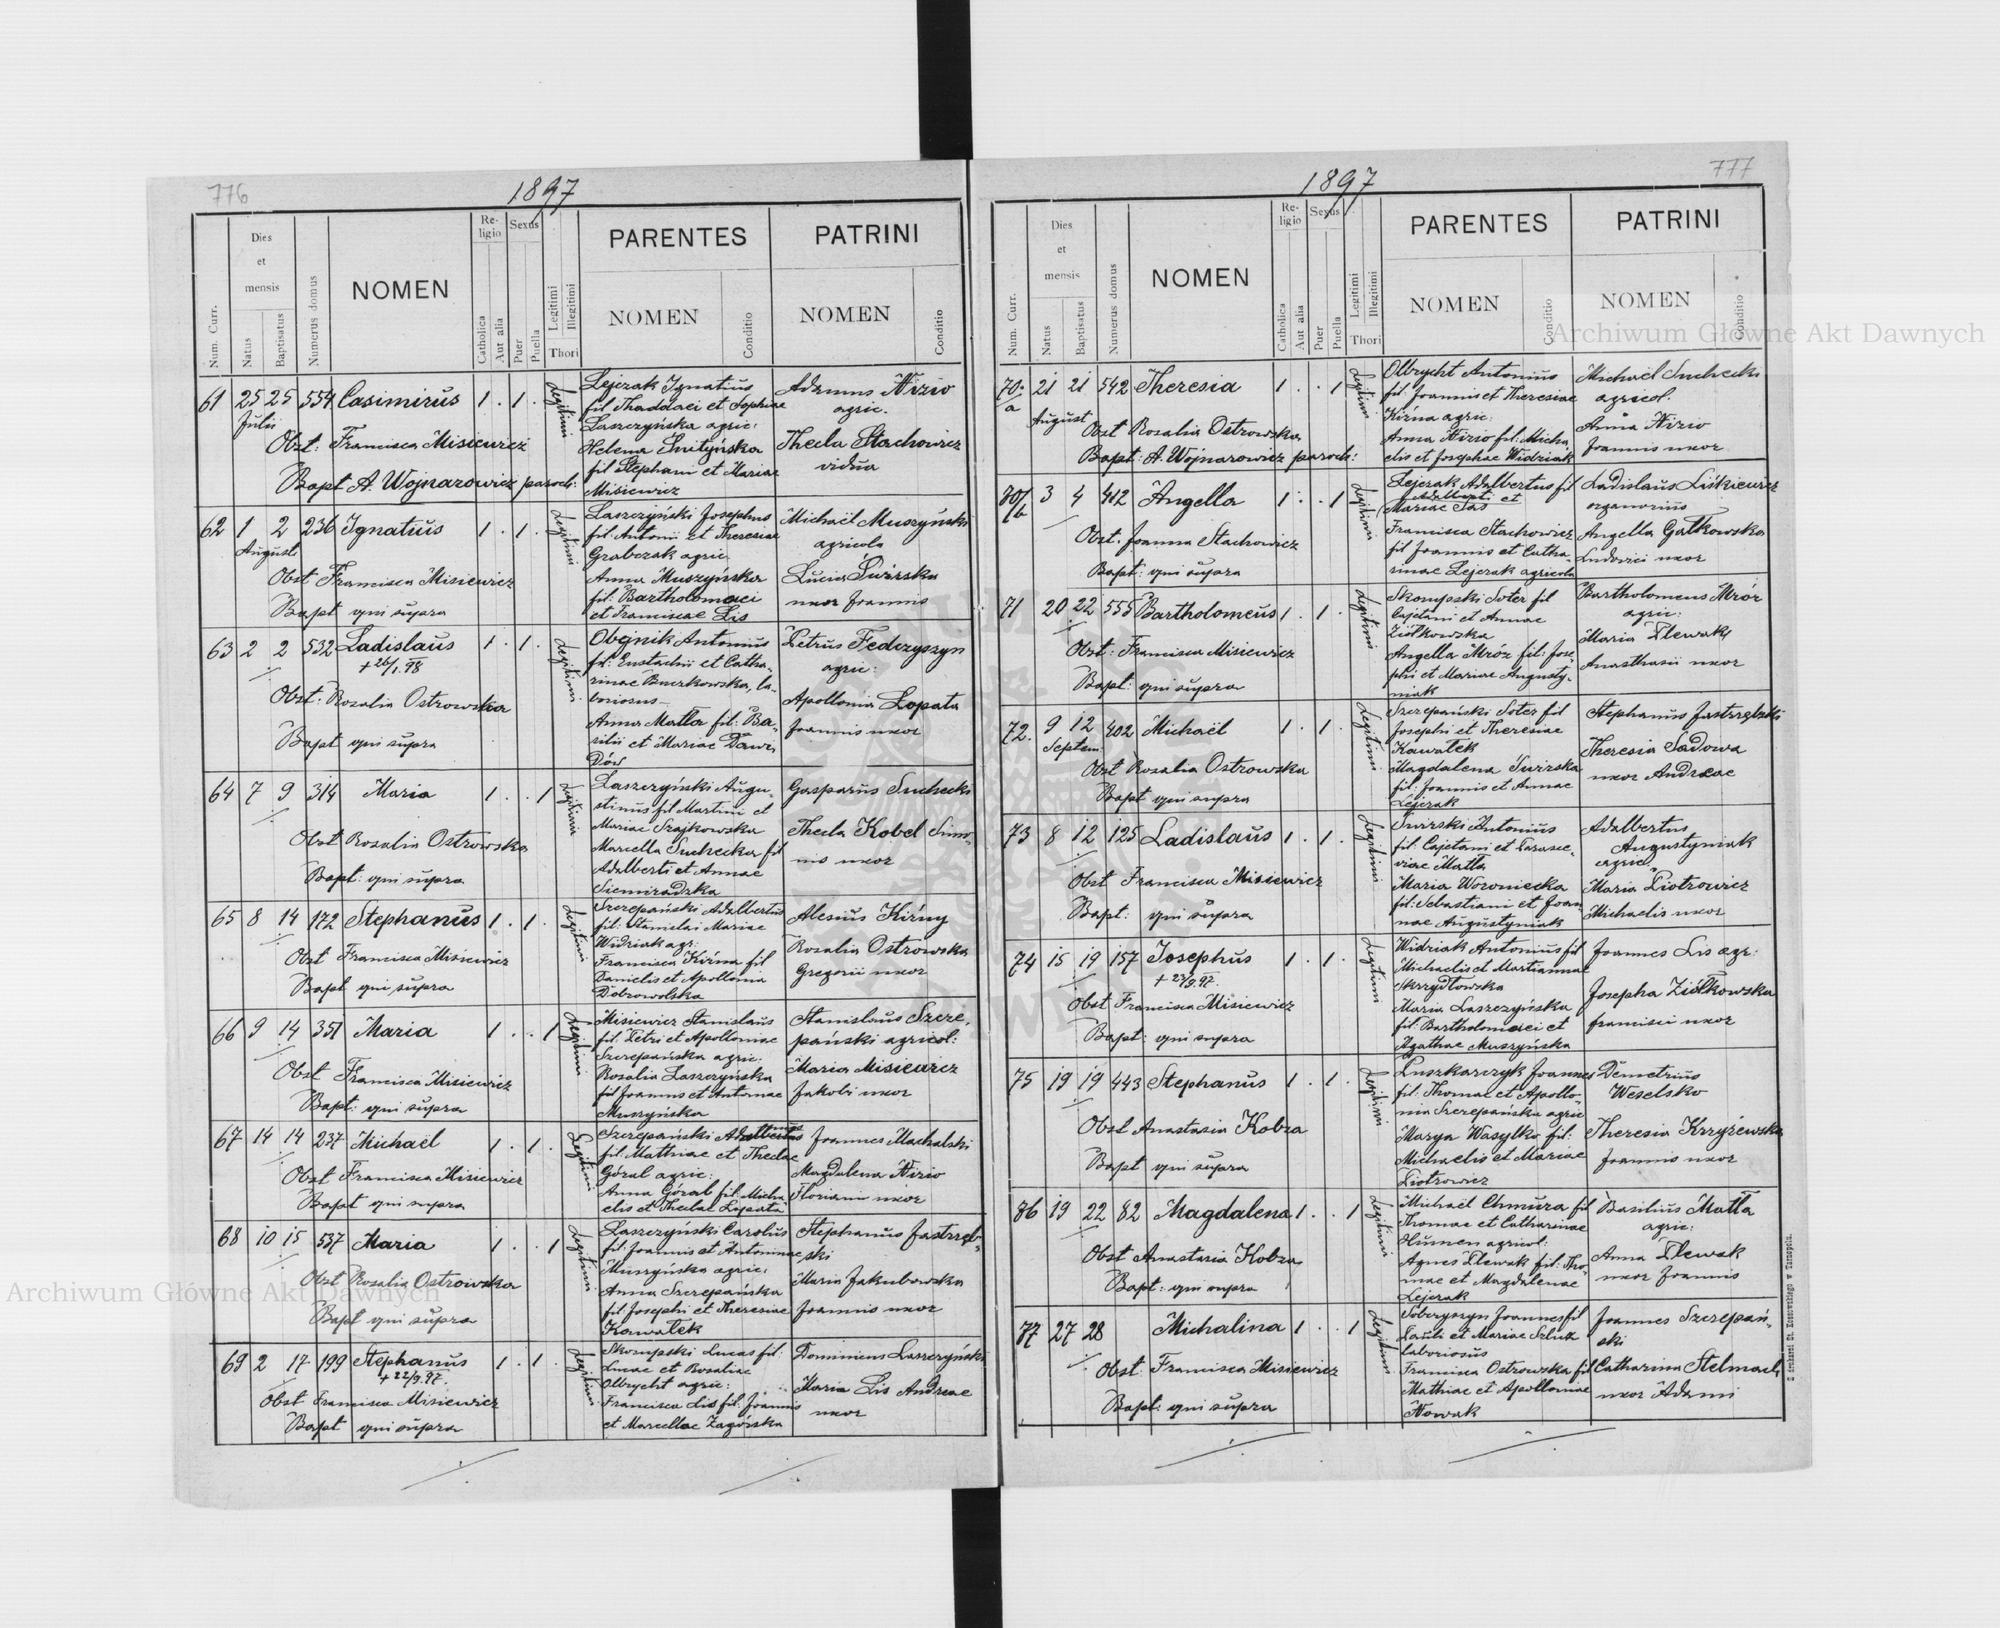 776
1897
Num. Curr.
Dies
et
mensis
Natus
Baptisatus
Numerus domus
NOMEN
Re-
ligio
Catholica
Aut alia
Sexus
Puer
Puella
Legitimi
Illegitimi
Thori
PARENTES
NOMEN
Conditio
PATRINI
NOMEN
Conditio
61 25 25 554 Casimirus 1 . 1 . Legitimi
Julii
Obst: Francisca Misiewicz
Bapt A. Wojnarowicz paroch:
Lejczak Ignatius
fil Thaddaei et Sophiae
Laszczyńska agric:
Helena Smityńska
fil Stephani et Mariae
Misiewicz
Adamus Nizio
agric.
Thecla Stachowicz
vidua
62 1 2 236 Ignatius 1 . 1 . Legitimi
Augusti
Obst Francisca Misiewicz
Bapt qui supra
Laszczyński Josephus
fil: Antonii et Theresiae
Grabczak agric
Anna Muszyńska
fil: Bartholomaei
et Franciscae Lis
Michaël Muszyński
agricola
Lucia Świrska
uxor Joannis
63 2 2 532 Ladislaus 1 . 1 . Legitimi
+ 26/1.98
Obst: Rosalia Ostrowska
Bapt qui supra
Obejnik Antonius
fil: Eustachii et Catha-
rinae Buczkowska, la-
boriosus
Anna Matla fil: Ba-
silii et Mariae Dawi-
Dów
Petrus Fedczyszyn
agric:
Apollonia Lopata
Joannis uxor
64 7 9 314 Maria 1 . . 1 Legitimi
Obst Rosalia Ostrowska
Bapt: qui supra
Laszczyński Augu-
stinus fil Martini et
Mariae Szajkowska
Marcella Suchecka fil
Adalberti et Annae
Siemiradzka
Gasparus Suchecki
Thecla Kobel Simo-
nis uxor
65 8 14 172 Stephanus 1 . 1 . Legitimi
Obst Francisca Misiewicz
Bapt qui supra
Szczepański Adalbertus
fil: Stanislai Mariae
Widziak agr:
Francisca Kirna fil
Danielis et Apollonia
Dobrowolska
Alesius Kirny
Rosalia Ostrowska
Gregorii uxor
66 9 14 351 Maria 1 . . 1 Legitimi
Obst Francisca Misiewicz
Bapt: qui supra
Misiewicz Stanislaus
fil: Petri et Apolloniae
Szczepańska agric:
Rosalia Laszczyńska
fil Joannis et Antoniae
Muszyńska
Stanislaus Szcze-
pański agricol:
Maria Misiewicz
Jakobi uxor
67 14 14 237 Michaël 1 . 1 . Legitimi
Obst Francisca Misiewicz
Bapt qui supra
Szczepański Adalbertus
fil: Mathiae et Theclae
Góral agric:
Anna Góral fil Micha-
elis et Theclae Lopata
Joannes Machalski
Magdalena Nizio
Floriani uxor
68 10 15 537 Maria 1 . . 1 Legitimi
Obst Rosalia Ostrowska
Bapt qui supra
Laszczyński Carolus
fil: Joannis et Antoninae
Muszyńska agric:
Anna Szczepańska
fil Josephi et Theresiae
Kawałek
Stephanus Jastrzęb-
ski
Maria Jakubowska
Joannis uxor
69 2 17 199 Stephanus 1 . 1 . Legitimi
+ 22/9.97.
Obst Francisca Misiewicz
Bapt qui supra
Skoropski Lucas fil:
Lucae et Rosaliae
Olbrycht agric:
Francisca Lis fil: Joannis
et Marcellae Zagórska
Dominicus Laszczyński
Maria Lis Andreae
uxor
777
1897
Num. Curr.
Dies
et
mensis
Natus
Baptisatus
Numerus domus
NOMEN
Re-
ligio
Catholica
Aut alia
Sexus
Puer
Puella
Legitimi
Illegitimi
Thori
PARENTES
NOMEN
Conditio
PATRINI
NOMEN
Conditio
70/a 21 21 542 Theresia 1 . . 1 Legitimi
August
Obst Rosalia Ostrowska
Bapt: A. Wojnarowicz paroch:
Olbrycht Antonius
fil: Joannis et Theresiae
Kirna agric:
Anna Nizio fil: Micha-
elis et Josephae Widziak
Michaël Suchecki
agricol.
Anna Nizio
Joannis uxor
70/b 3 4 412 Angella 1 . . 1 Legitimi
Obst: Joanna Stachowicz
Bapt: qui supra
Lejczak Adalbertus fil
Adalberti et
Mariae Sas
Francisca Stachowicz
fil Joannis et Catha-
rinae Lejczak agricola
Ladislaus Liśkiewicz
organarius
Angella Gałkowska
Ludovici uxor
71 20 22 555 Bartholomeus 1 . 1 . Legitimi
Obst: Francisca Misiewicz
Bapt: qui supra
Skoropski Soter fil
Cajetani et Annae
Ziółkowska
Angella Mróz fil: Jose-
phi et Mariae Augusty-
niak
Bartholomeus Mróz
agric:
Maria Plewak
Anasthasii uxor
72. 9 12 402 Michaël 1 . 1 . Legitimi
Septem
Obst Rosalia Ostrowska
Bapt qui supra
Szczepański Soter fil
Josephi et Theresiae
Kawałek
Magdalena Świrska
fil: Joannis et Annae
Lejczak
Stephanus Jastrzębski
Theresia Sadowa
uxor Andreae
73 8 12 125 Ladislaus 1 . 1 . Legitimi
Obst Francisca Misiewicz
Bapt: qui supra
Świrski Antonius
fil: Cajetani et Parasce-
viae Matla
Maria Woroniecka
fil: Sebastiani et Joan-
nae Augustyniak
Adalbertus
Augustyniak
agric.
Maria Piotrowicz
Michaelis uxor
74 15 19 157 Josephus 1 . 1 . Legitimi
Obst Francisca Misiewicz
Bapt: qui supra
Widziak Antonius fil
Michaelis et Mariannae
Skrzydłowska
Maria Laszczyńska
fil: Bartholomaei et
Agathae Muszyńska
Joannes Lis agr:
Josepha Ziółkowska
francisci uxor
75 19 19 443 Stephanus 1 . 1 . Legitimi
Obst Anastasia Kobza
Bapt qui supra
Łuszkarczyk Joannes
fil: Thomae et Apollo-
nia Szczepańska agric
Marya Wasylko fil:
Michaelis et Mariae
Piotrowicz
Demetrius
Weselsko
Theresia Krzyżewska
Joannis uxor
86 19 22 82 Magdalena 1 . . 1 Legitimi
Obst Anastasia Kobza
Bapt: qui supra
Michaël Chmura fil
Thomae et Catharinae
Humen agricol:
Agnes Plewak fil: Tho-
mae et Magdalenae
Lejczak
Basilius Matla
agric:
Anna Plewak
uxor Joannis
77 27 28 Michalina 1 . . 1 Legitimi
Obst: Francisca Misiewicz
Bapt: qui supra
Soberyszyn Joannes fil
Pauli et Mariae Szluz
laboriosus
Francisca Ostrowska fil
Mathiae et Apolloniae
Nowak
Joannes Szczepań-
ski
Catharina Stelmach
uxor Adami
Z drukarni St. Kossowskiego w Tarnopolu.
Archiwum Główne Akt Dawnych
Archiwum Główne Akt Dawnych